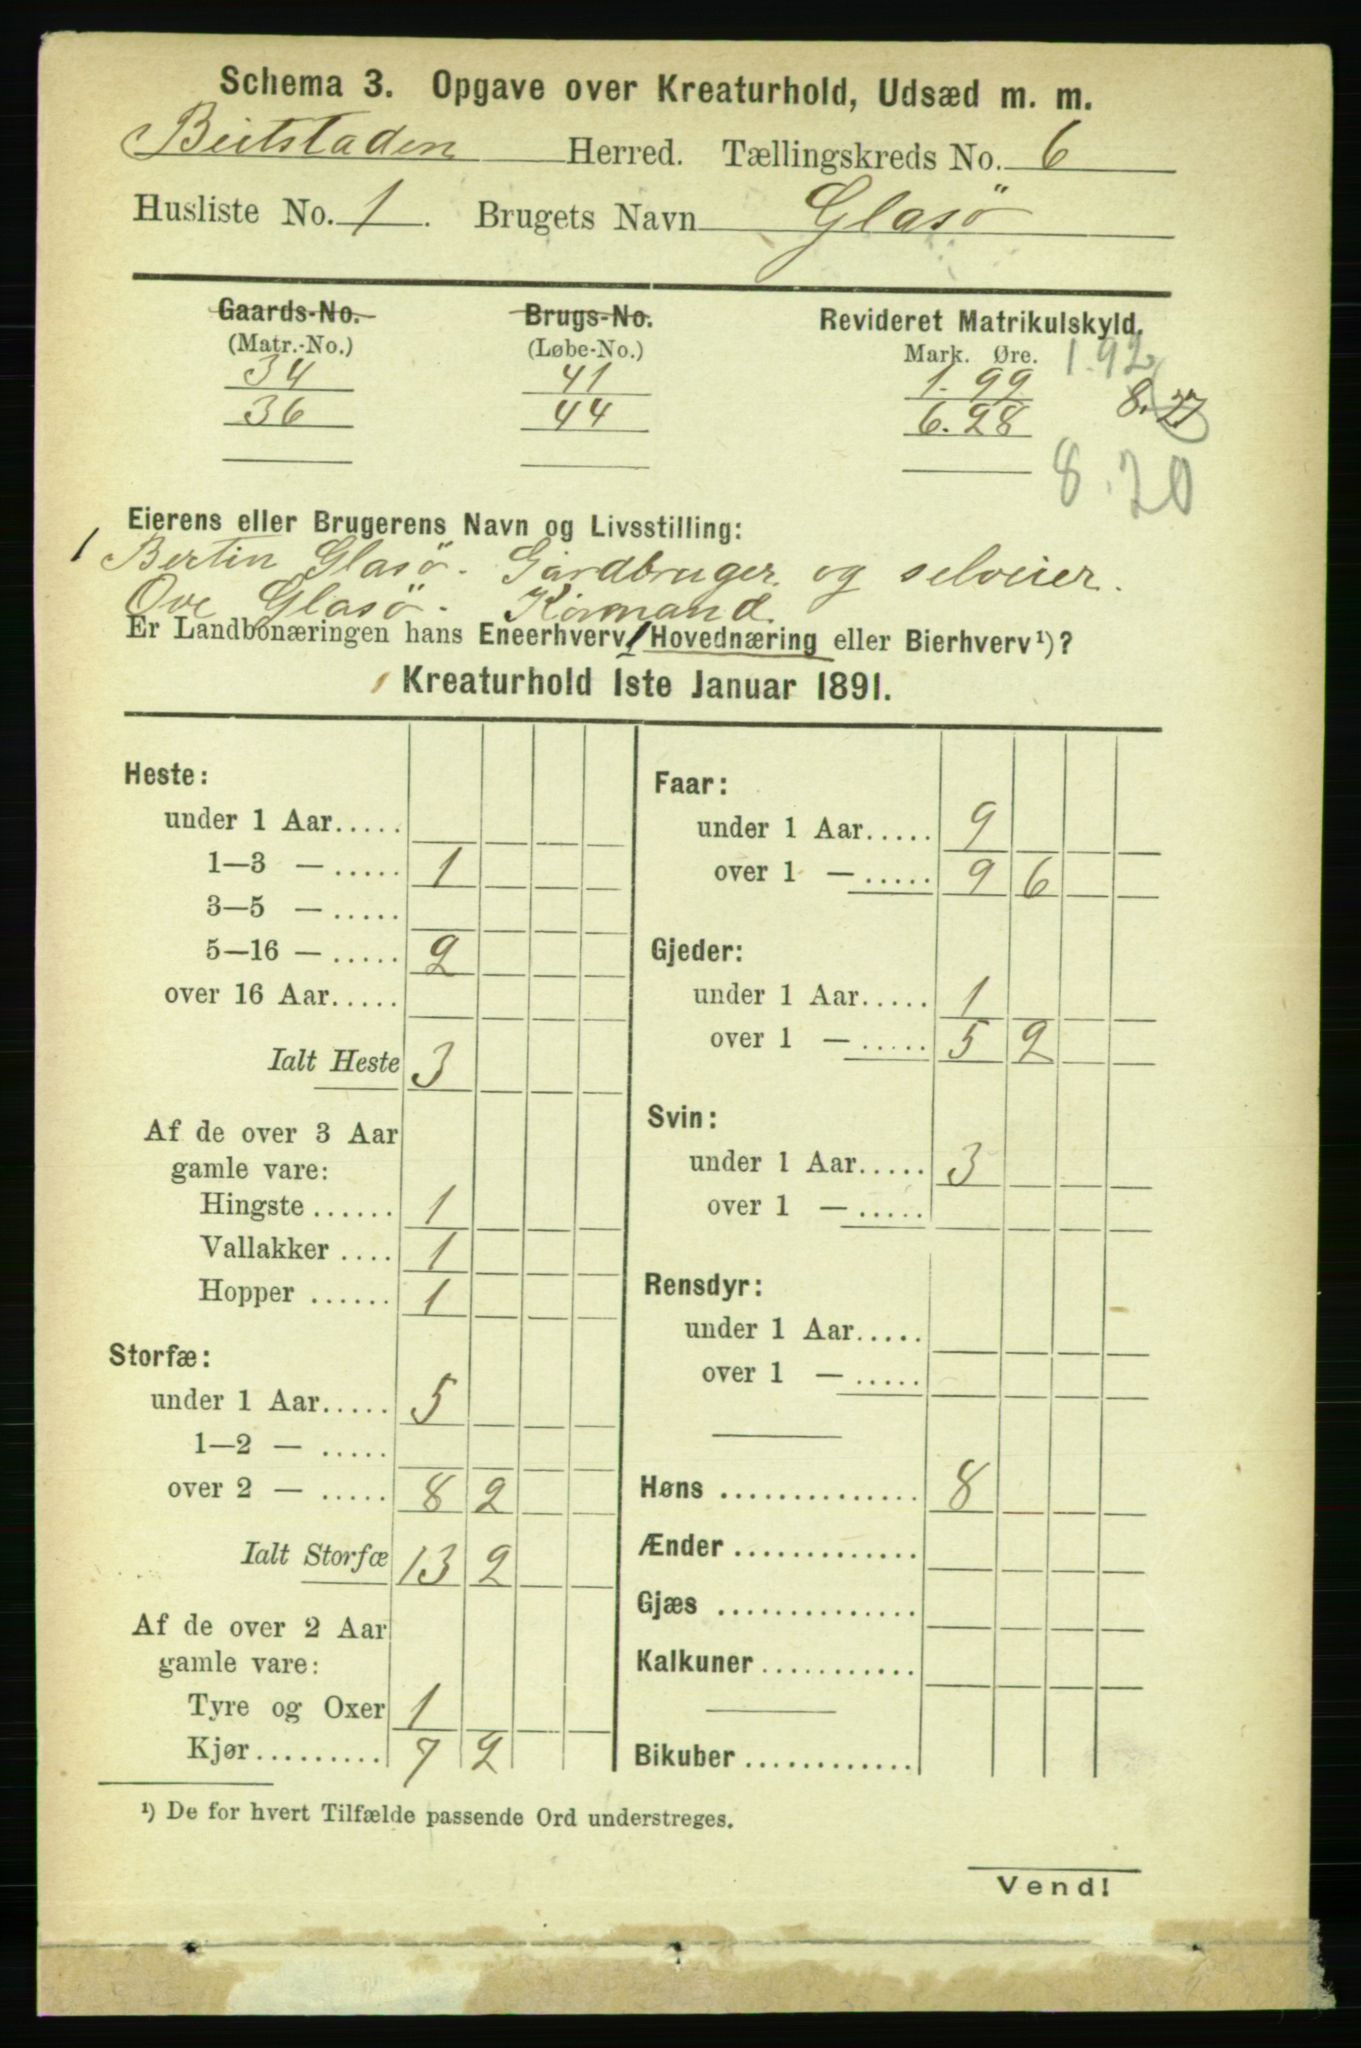 Schema 3. Opgave over Kreaturhold, Udsæd m. m.
Beitstaden Herred. Tællingskreds No. 6
Husliste No. 1. Brugets Navn Glasö
Gaards-No. Brugs-No. Revideret Matrikulskyld.
(Matr.-No.) (Løbe-No.) Mark. Øre. 1.92
34 41 1.99 8.27
36 44 6.28
8.20
Eierens eller Brugerens Navn og Livsstilling:
1 Bertin Glasö. Gårdbruger og selveier.
Ove Glasö. Kårmand.
Er Landbonæringen hans Eneerhverv, Hovednæring eller Bierhverv¹)?
Kreaturhold 1ste Januar 1891.
Heste:
under 1 Aar.....
1—3 — ..... 1
3—5 — .....
5—16 — ..... 2
over 16 Aar.....
Ialt Heste 3
Af de over 3 Aar
gamle vare:
Hingste ...... 1
Vallakker .... 1
Hopper ...... 1
Storfæ:
under 1 Aar..... 5
1—2 — .....
over 2 — ..... 8 2
Ialt Storfæ 13 2
Af de over 2 Aar
gamle vare:
Tyre og Oxer 1
Kjør......... 7 2
Faar:
under 1 Aar..... 9
over 1 — ..... 9 6
Gjeder:
under 1 Aar..... 1
over 1 — ..... 5 2
Svin:
under 1 Aar..... 3
over 1 — .....
Rensdyr:
under 1 Aar.....
over 1 — .....
Høns .............. 8
Ænder .............
Gjæs ..............
Kalkuner...........
Bikuber ............
¹) De for hvert Tilfælde passende Ord understreges.
Vend!